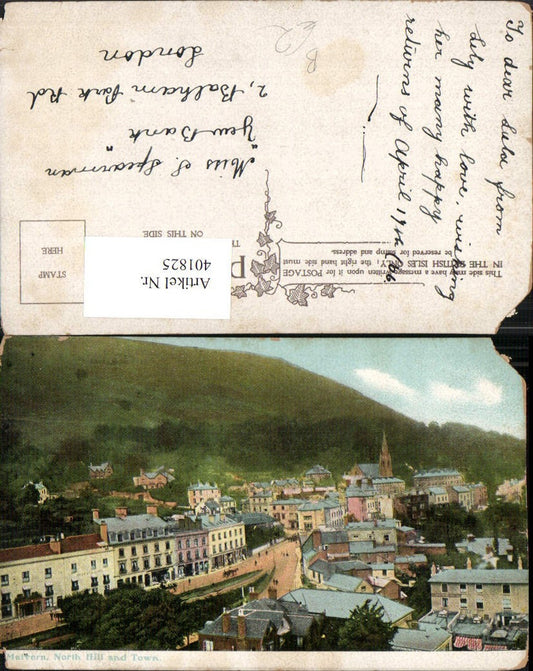 To dear Lula from
Lily with love, wishing
her many happy
returns of April 1st
Miss S. Spearman
"Yew Bank"
2, Balham Park Rd
London
ON THIS SIDE
STAMP
HERE
This side may have a message written upon it for POSTAGE
IN THE BRITISH ISLES ONLY; the right hand side must
be reserved for stamp and address.
Artikel Nr.
401825
Malvern, North Hill and Town.